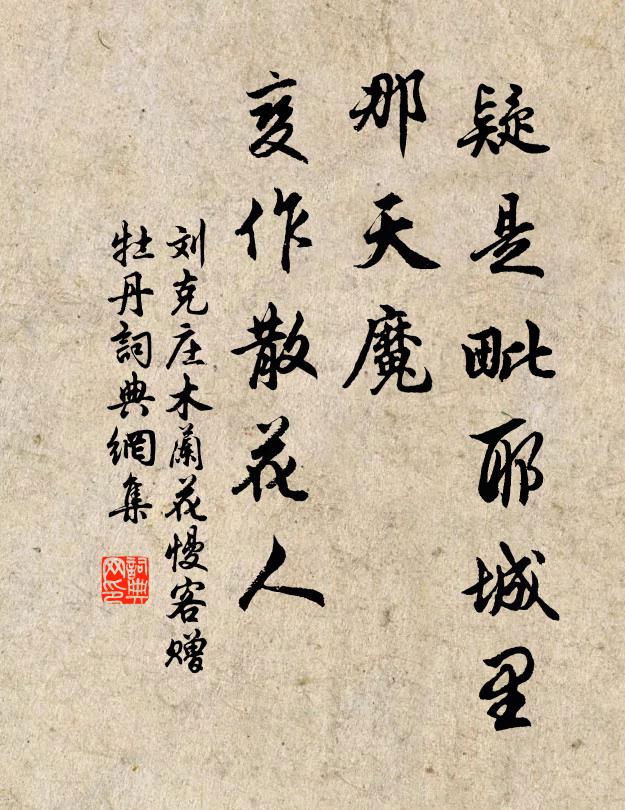 疑是毗耶城里
那天魔
变作散花人
刘克庄木蘭花慢客赠
牡丹詞典網集
詞典网印